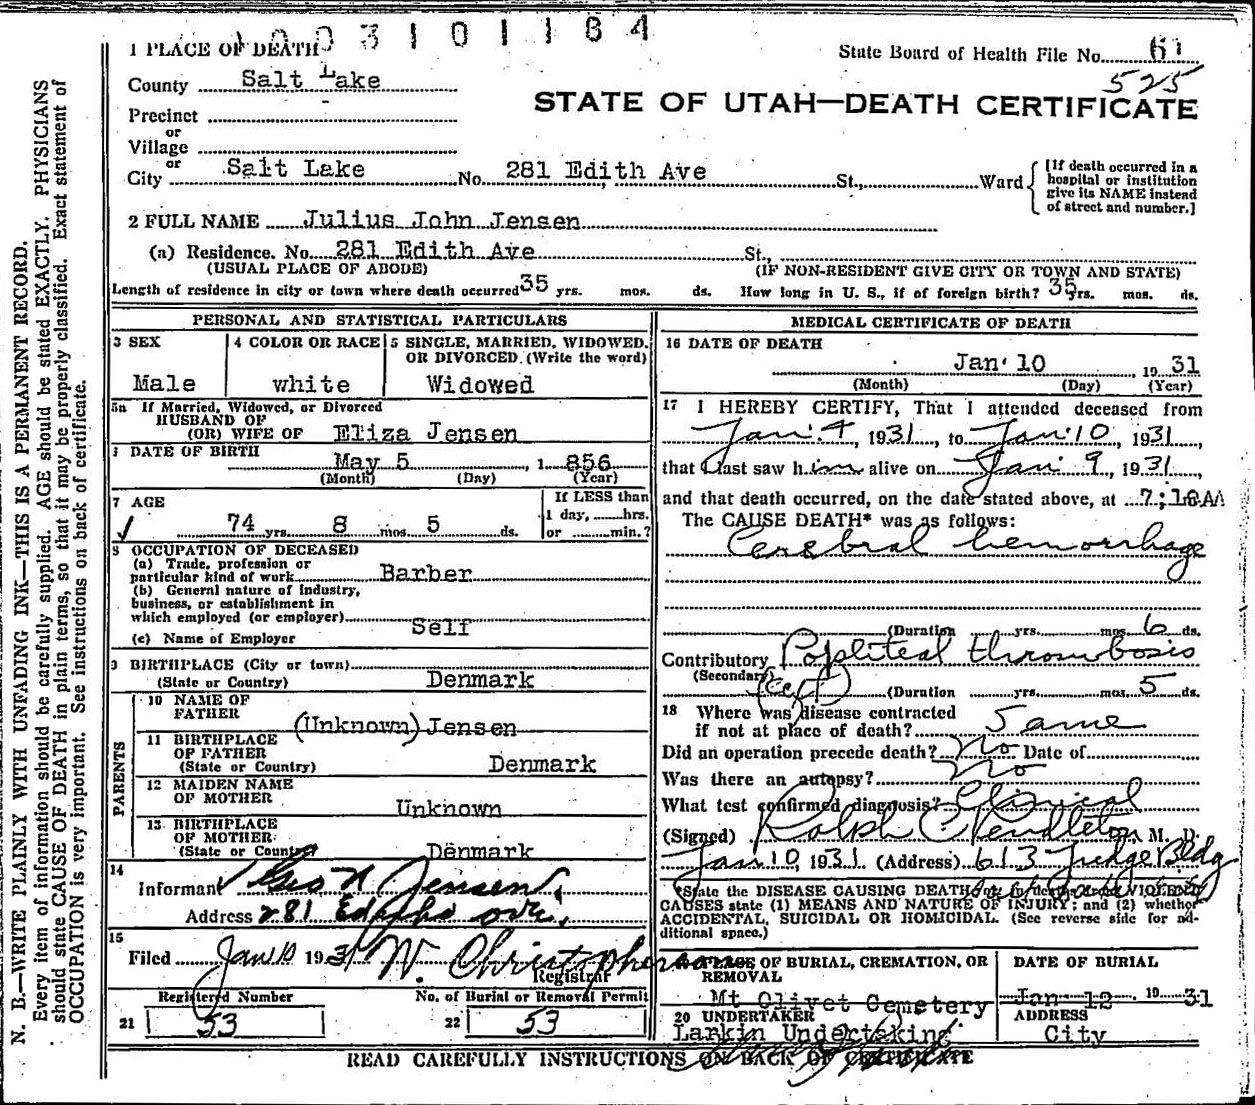 1003101184
1 PLACE OF DEATH
State Board of Health File No. 61
County Salt Lake
525
STATE OF UTAH—DEATH CERTIFICATE
Precinct
or
Village
or
City Salt Lake No. 281 Edith Ave St., Ward
[If death occurred in a
hospital or institution
give its NAME instead
of street and number.]
2 FULL NAME Julius John Jensen
(a) Residence. No. 281 Edith Ave St.,
(USUAL PLACE OF ABODE) (IF NON-RESIDENT GIVE CITY OR TOWN AND STATE)
Length of residence in city or town where death occurred 35 yrs. mos. ds. How long in U. S., if of foreign birth? 35 yrs. mos. ds.
PERSONAL AND STATISTICAL PARTICULARS
3 SEX
Male
4 COLOR OR RACE
white
5 SINGLE, MARRIED, WIDOWED,
OR DIVORCED. (Write the word)
Widowed
5a If Married, Widowed, or Divorced
HUSBAND OF
(OR) WIFE OF Eliza Jensen
DATE OF BIRTH
May 5, 1856
(Month) (Day) (Year)
7 AGE
74 yrs. 8 mos. 5 ds.
If LESS than
1 day, hrs.
or min.?
8 OCCUPATION OF DECEASED
(a) Trade, profession or
particular kind of work Barber
(b) General nature of industry,
business, or establishment in
which employed (or employer)
Self
(c) Name of Employer
9 BIRTHPLACE (City or town)
(State or Country) Denmark
PARENTS
10 NAME OF
FATHER (Unknown) Jensen
11 BIRTHPLACE
OF FATHER
(State or Country) Denmark
12 MAIDEN NAME
OF MOTHER
Unknown
13 BIRTHPLACE
OF MOTHER
(State or Country) Denmark
14
Informant Geo N Jensen
Address 281 Edith ave.
15
Filed Jan 10 1931 W. Christopherson
Registrar
Registered Number
21 53
No. of Burial or Removal Permit
22 53
MEDICAL CERTIFICATE OF DEATH
16 DATE OF DEATH
Jan 10, 1931
(Month) (Day) (Year)
17 I HEREBY CERTIFY, That I attended deceased from
Jan. 4, 1931, to Jan 10, 1931,
that I last saw him alive on Jan 9, 1931,
and that death occurred, on the date stated above, at 7:18AM
The CAUSE DEATH* was as follows:
Cerebral hemorrhage
(Duration yrs. mos. 6 ds.
Contributory Popliteal thrombosis
(Secondary) (left) (Duration yrs. mos. 5 ds.
18 Where was disease contracted
if not at place of death? Same
Did an operation precede death? No Date of
Was there an autopsy? No
What test confirmed diagnosis? Clinical
(Signed) Ralph C Pendleton M. D.
Jan 10, 1931. (Address) 613 Judge Bldg
*State the DISEASE CAUSING DEATH, or in deaths from VIOLENT
CAUSES state (1) MEANS AND NATURE OF INJURY; and (2) whether
ACCIDENTAL, SUICIDAL OR HOMICIDAL. (See reverse side for ad-
ditional space.)
19 PLACE OF BURIAL, CREMATION, OR
REMOVAL
Mt Olivet Cemetery
DATE OF BURIAL
Jan 12 1931
20 UNDERTAKER
Larkin Undertaking
ADDRESS
City
READ CAREFULLY INSTRUCTIONS ON BACK OF CERTIFICATE
N. B.—WRITE PLAINLY WITH UNFADING INK—THIS IS A PERMANENT RECORD.
Every item of information should be carefully supplied. AGE should be stated EXACTLY. PHYSICIANS
should state CAUSE OF DEATH in plain terms, so that it may be properly classified. Exact statement of
OCCUPATION is very important. See instructions on back of certificate.